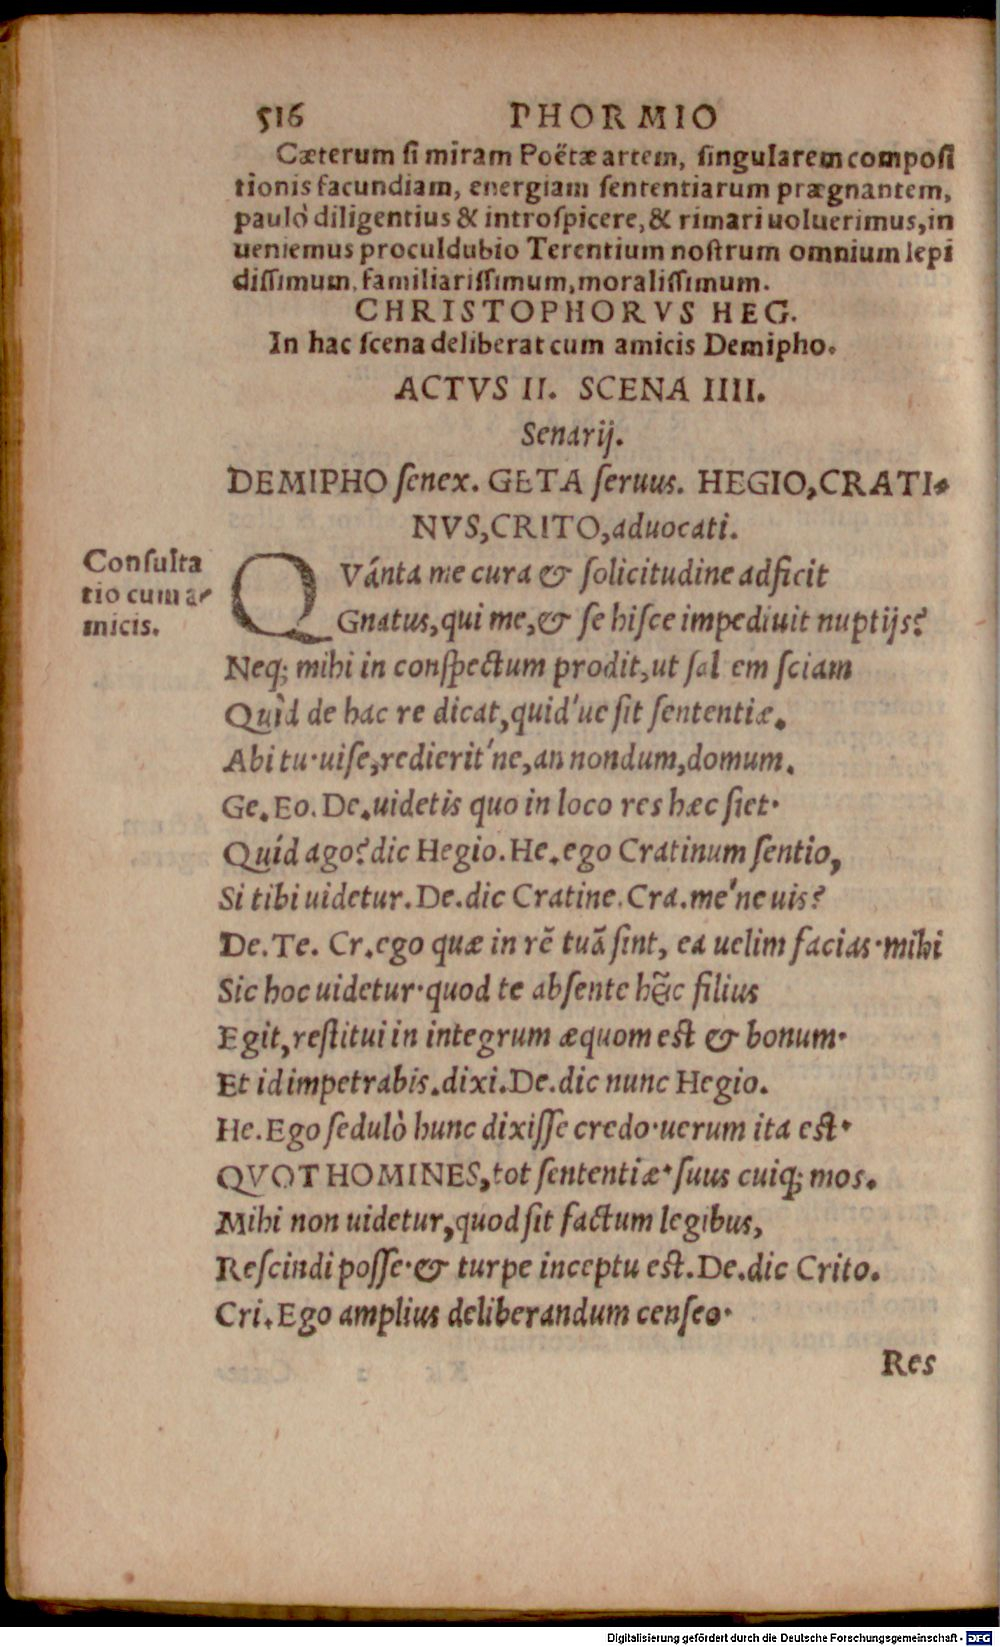 516 PHORMIO
Cæterum ſi miram Poëtæ artem, ſingularem compoſi
tionis facundiam, energiam ſententiarum prægnantem,
paulò diligentius & introſpicere, & rimari uoluerimus, in
ueniemus proculdubio Terentium noſtrum omnium lepi
diſſimum, familiariſſimum, moraliſſimum.
CHRISTOPHORVS HEG.
In hac ſcena deliberat cum amicis Demipho.
ACTVS II. SCENA IIII.
Senarij.
DEMIPHO ſenex. GETA ſeruus. HEGIO, CRATI-
NVS, CRITO, aduocati.
Conſulta
tio cum a-
micis.
QVánta me cura & ſolicitudine adficit
Gnatus, qui me, & ſe hiſce impediuit nuptijs?
Neq; mihi in conſpectum prodit, ut ſal em ſciam
Quid de hac re dicat, quid'ue ſit ſententiæ.
Abi tu· uiſe, redierit'ne, an nondum, domum.
Ge. Eo. De. uidetis quo in loco res hæc ſiet·
Quid ago? dic Hegio. He. ego Cratinum ſentio,
Si tibi uidetur. De. dic Cratine. Cra. me'ne uis?
De. Te. Cr. ego quæ in rē tuā ſint, ea uelim facias· mihi
Sic hoc uidetur· quod te abſente hic filius
Egit, reſtitui in integrum æquom eſt & bonum·
Et id impetrabis. dixi. De. dic nunc Hegio.
He. Ego ſedulò hunc dixiſſe credo· uerum ita eſt·
QVOT HOMINES, tot ſententiæ· ſuus cuiq; mos.
Mihi non uidetur, quod ſit factum legibus,
Reſcindi poſſe· & turpe inceptu eſt. De. dic Crito.
Cri. Ego amplius deliberandum cenſeo·
Res
Digitalisierung gefördert durch die Deutsche Forschungsgemeinschaft - DFG